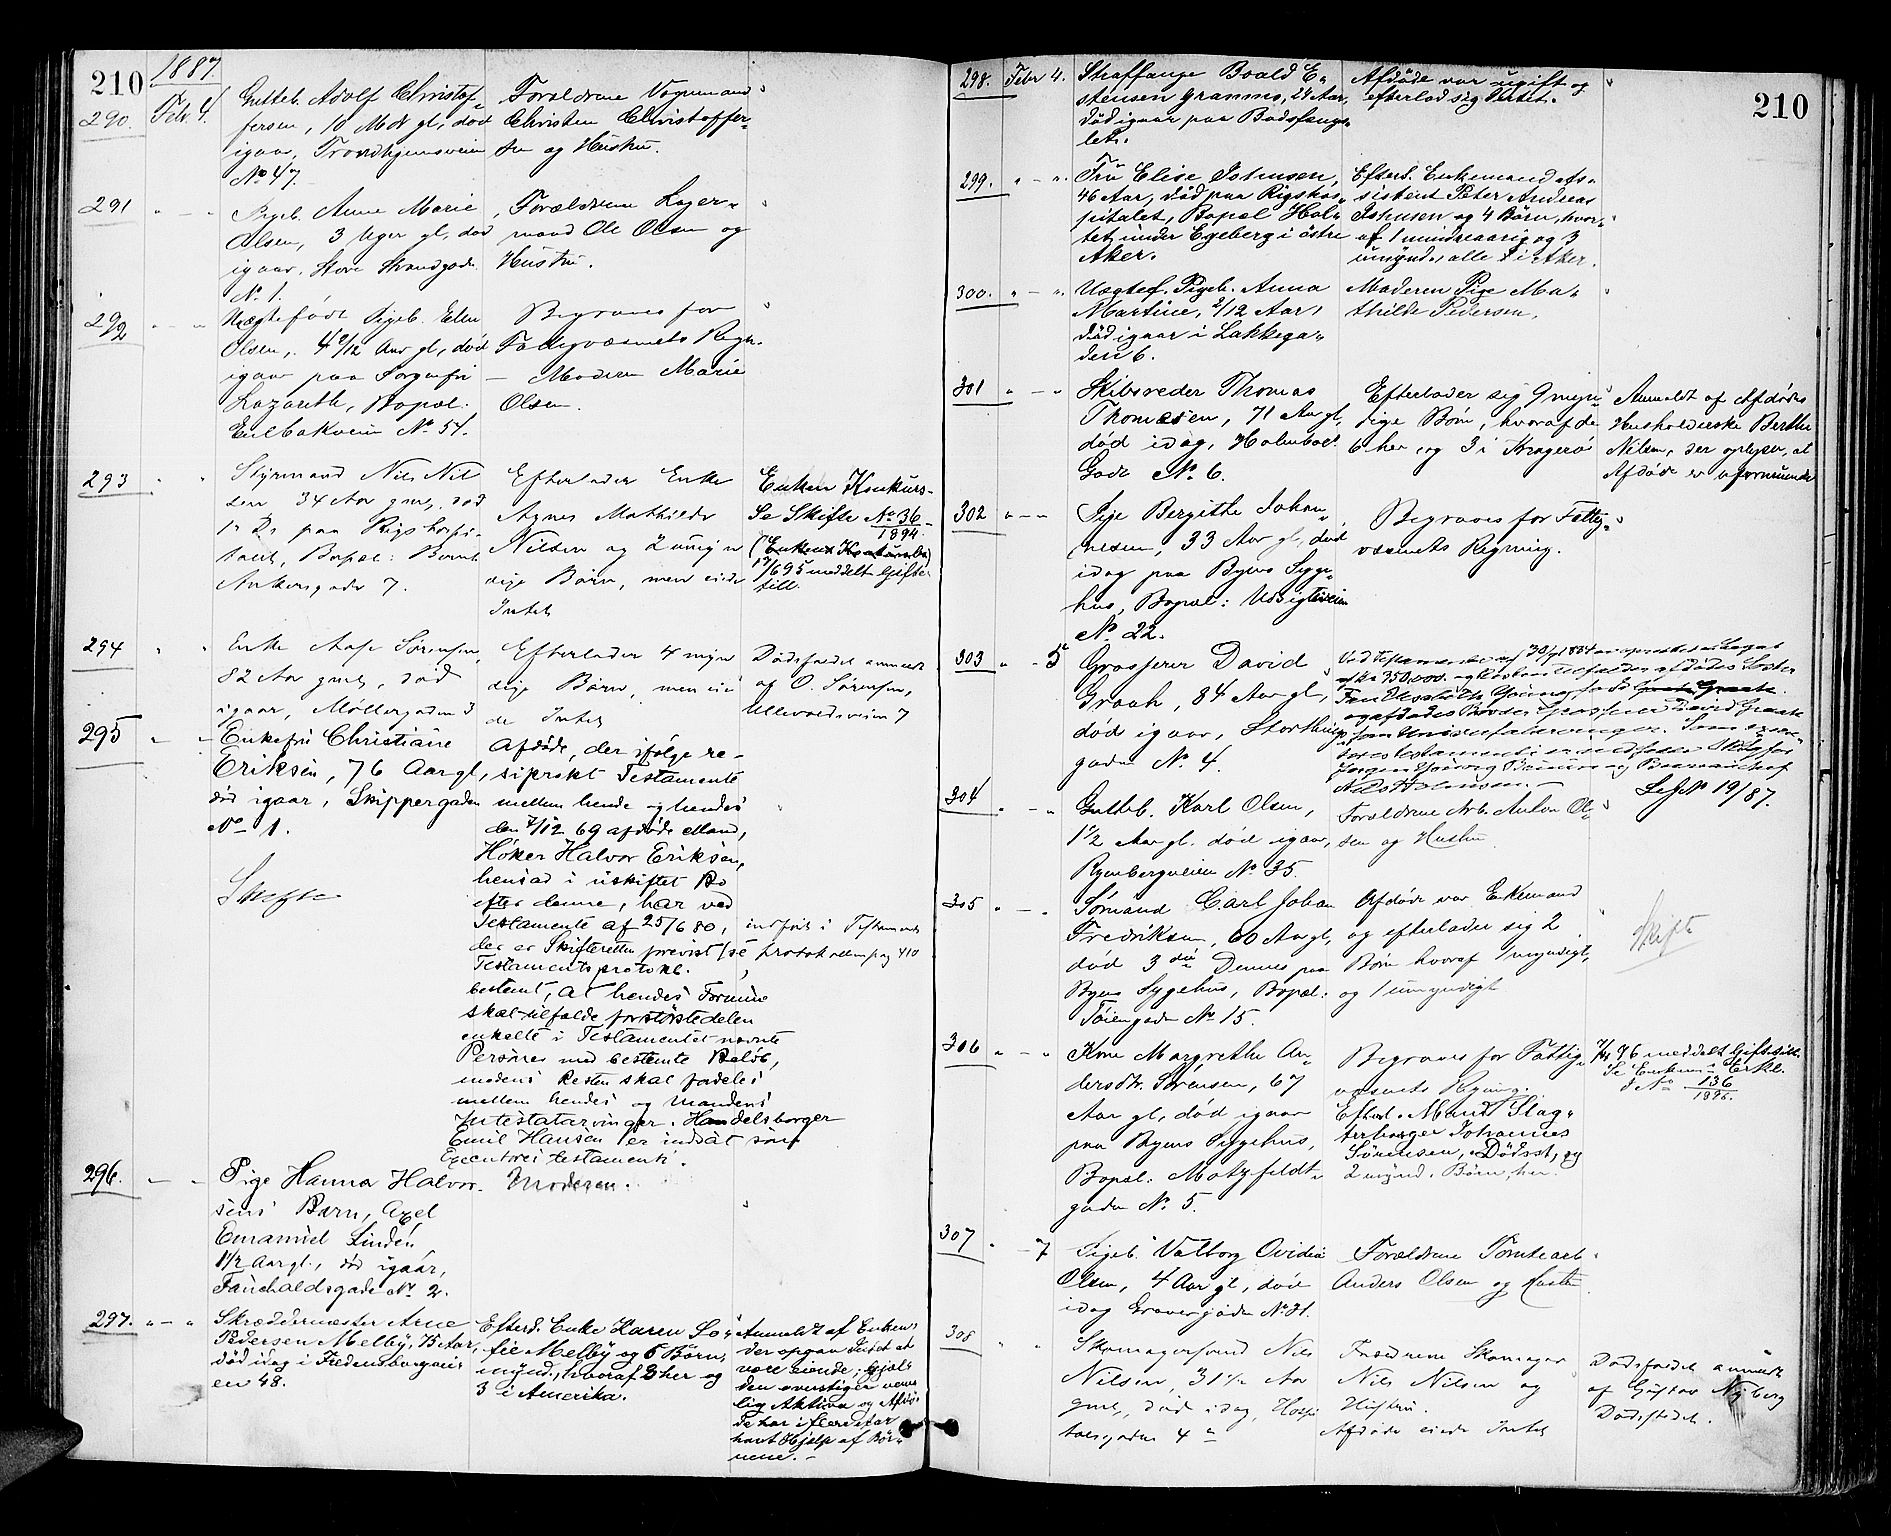 210
1887.
290. Febr 4. Gutteb. Adolf Christof-
fersen, 10 Mdr gl, død
igaar, Trondhjemsveien
No 47.
Forældrene Vognmand
Christen Christoffer-
sen og Hustru.
291 " - " Pigeb. Anne Marie
Olsen, 3 Uger gl, død
igaar, Store Strandgade
No 1.
Forældrene Lager-
mand Ole Olsen og
Hustru.
292 " - " Uægtefødt Pigeb. Ellen
Olsen, 4 /12 Aar gl, død
igaar paa Sorgenfri
Lazareth, Bopæl:
Enebakveien No 54.
Begraves for
Fattigvæsenets Regn.
— Moderen Marie
Olsen.
293 " " Styrmand Nils Nil
sen 34 Aar gml, død
paa Rigshospi-
talet, Bopæl: Bernt
Ankersgade 7.
Efterlader Enke
Agnes Mathilde
Nilsen og 2 umyn
dige Børn, men eiede
Intet
Enkens Konkurs-
Se Skifte No 36
1894
(Enkens Konkursbo)
17/6 95 meddelt Gifte-
till.
294 " " Enke Aase Sørensen,
82 Aar gml, død
igaar, Møllergaden 3
Efterlader 4 myn
dige Børn, men eie
de Intet
Dødsfaldet anmeldt
af O. Sørensen,
Ullevoldsveien 7
295 " - " Enkefru Christiane
Eriksen, 76 Aar gl,
død igaar, Skippergaden
No 1.
Skifte
Afdøde, der ifølge re-
siprokt Testamente
mellem hende og hendes
den 7/12 69 afdøde Mand,
Høker Halvor Eriksen,
hensad i uskiftet Bo
efter denne, har ved
Testamente af 25/6 80,
der er Skifteretten forevist /se
Testamentsprotokl.
indført i Testaments
protokollen pag 410
bestemt, at hendes Formue
skal tilfalde forstørstedelen
enkelte i Testamentet nævnte
Personer med bestemte Beløb,
medens Resten skal fordeles
mellem hendes og Mandens
Intestatarvinger. Handelsborger
Emil Hansen er indsat som
Executor testamenti.
296. " - " Pige Hanna Halvor-
sens Barn, Axel
Emanuel Lindén
1 1/2 Aar gl., død igaar,
Fauchaldsgade No 2.
Moderen.
297. " - " Skræddermester Arne
Pedersen Melby, 75 Aar,
død idag i Fredensborgvei-
en 48.
Efterl. Enke Karen So-
fie Melby og 6 Børn,
mynd., hvoraf 3 her og
3 i Amerika.
Anmeldt af Enken,
der opgav Intet at
være eiende; Gjæl-
den overstiger væsent-
lig Aktiva og Afdø-
de har i flere Aar
havt Hjælp af Bør-
nene. -
210
298. Febr 4. Straffange Boald E-
stensen Granmo, 24 Aar,
død igaar paa Bodsfænge-
let.
Afdøde var ugift og
efterlod sig Intet.
299. " - " Fru Elise Johnsen,
46 Aar, død paa Rigshos-
pitalet, Bopæl Hol-
tet under Egeberg i østre
Aker.
Efterl. Enkemand As-
sistent Peter Andreas
Johnsen og 4 Børn, hvor-
af 1 mindreaarig og 3
umynd., alle i Aker.
300. " - " Uægtef. Pigeb. Anna
Martine, /12 Aar,
død igaar i Lakkega-
den 6.
Moderen Pige Ma-
thilde Pedersen.
301 " - " Skibsreder Thomas
Thomesen, 71 Aar gl,
død idag, Holmboes
Gade No 6.
Efterlader sig 9 myn-
dige Børn, hvoraf de
6 her, og 3 i Kragerø
Anmeldt af Afdødes
Husholderske Berthe
Nilsen, der oplyser, at
Afdøde er uformuende
302 " - " Pige Bergithe Johan-
nesen, 33 Aar gl, død
idag paa Byens Syge-
hus, Bopæl: Udsigtsveien
No 22.
Begraves for Fattig-
væsenets Regning.
303 " - 5 Grosserer David
Graah, 84 Aar gl,
død igaar, Storthings-
gaden No 4.
Ved Testamente af
og afdødes Broder Grosserer David Graah
Niels
Se No 19/87.
304 " - " Gutteb. Karl Olsen,
1 1/2 Aar gl. død igaar,
Ryenbergveien No 35.
Forældrene Arb. Anton Ol-
sen og Hustru.
305 " - " Sømand Carl Johan
Fredriksen, 60 Aar gl,
død 3die Dennes paa
Byens Sygehus, Bopæl:
Tøiengaden No 15.
Afdøde var Enkemand
og efterlader sig 2
Børn hvoraf 1 myndigt,
og 1 umyndigt
Skifte
306 " - " Kone Margrethe An-
dersdtr. Sørensen, 67
Aar gl, død igaar
paa Byens Sygehus,
Bopæl: Motzfeldt-
gaden No 5.
Begraves for Fattig-
væsenets Regning.
Efterl. Mand Slag-
terborger Johannes
Sørensen, Dødsst, og
2 mynd. Børn, her.
96 meddelt Giftetill.
Se Enkem. Erkl.
No 136
1896.
307 " - 7 Pigeb. Valborg Ovidia
Olsen, 4 Aar gl, død
idag Graversgaden No 11.
Forældrene Tomtearb.
Anders Olsen og Hustru
308 " " Skomagersvend Nils
Nilsen, 31 1/2 Aar
gml, død idag, Hospi
talsgaden 4 a
Forældrene Skomager
Nils Nilsen og
Hustru.
Afdøde eiede Intet
Dødsfaldet anmeldt
af Gustav Nyberg
Dødsstedet.